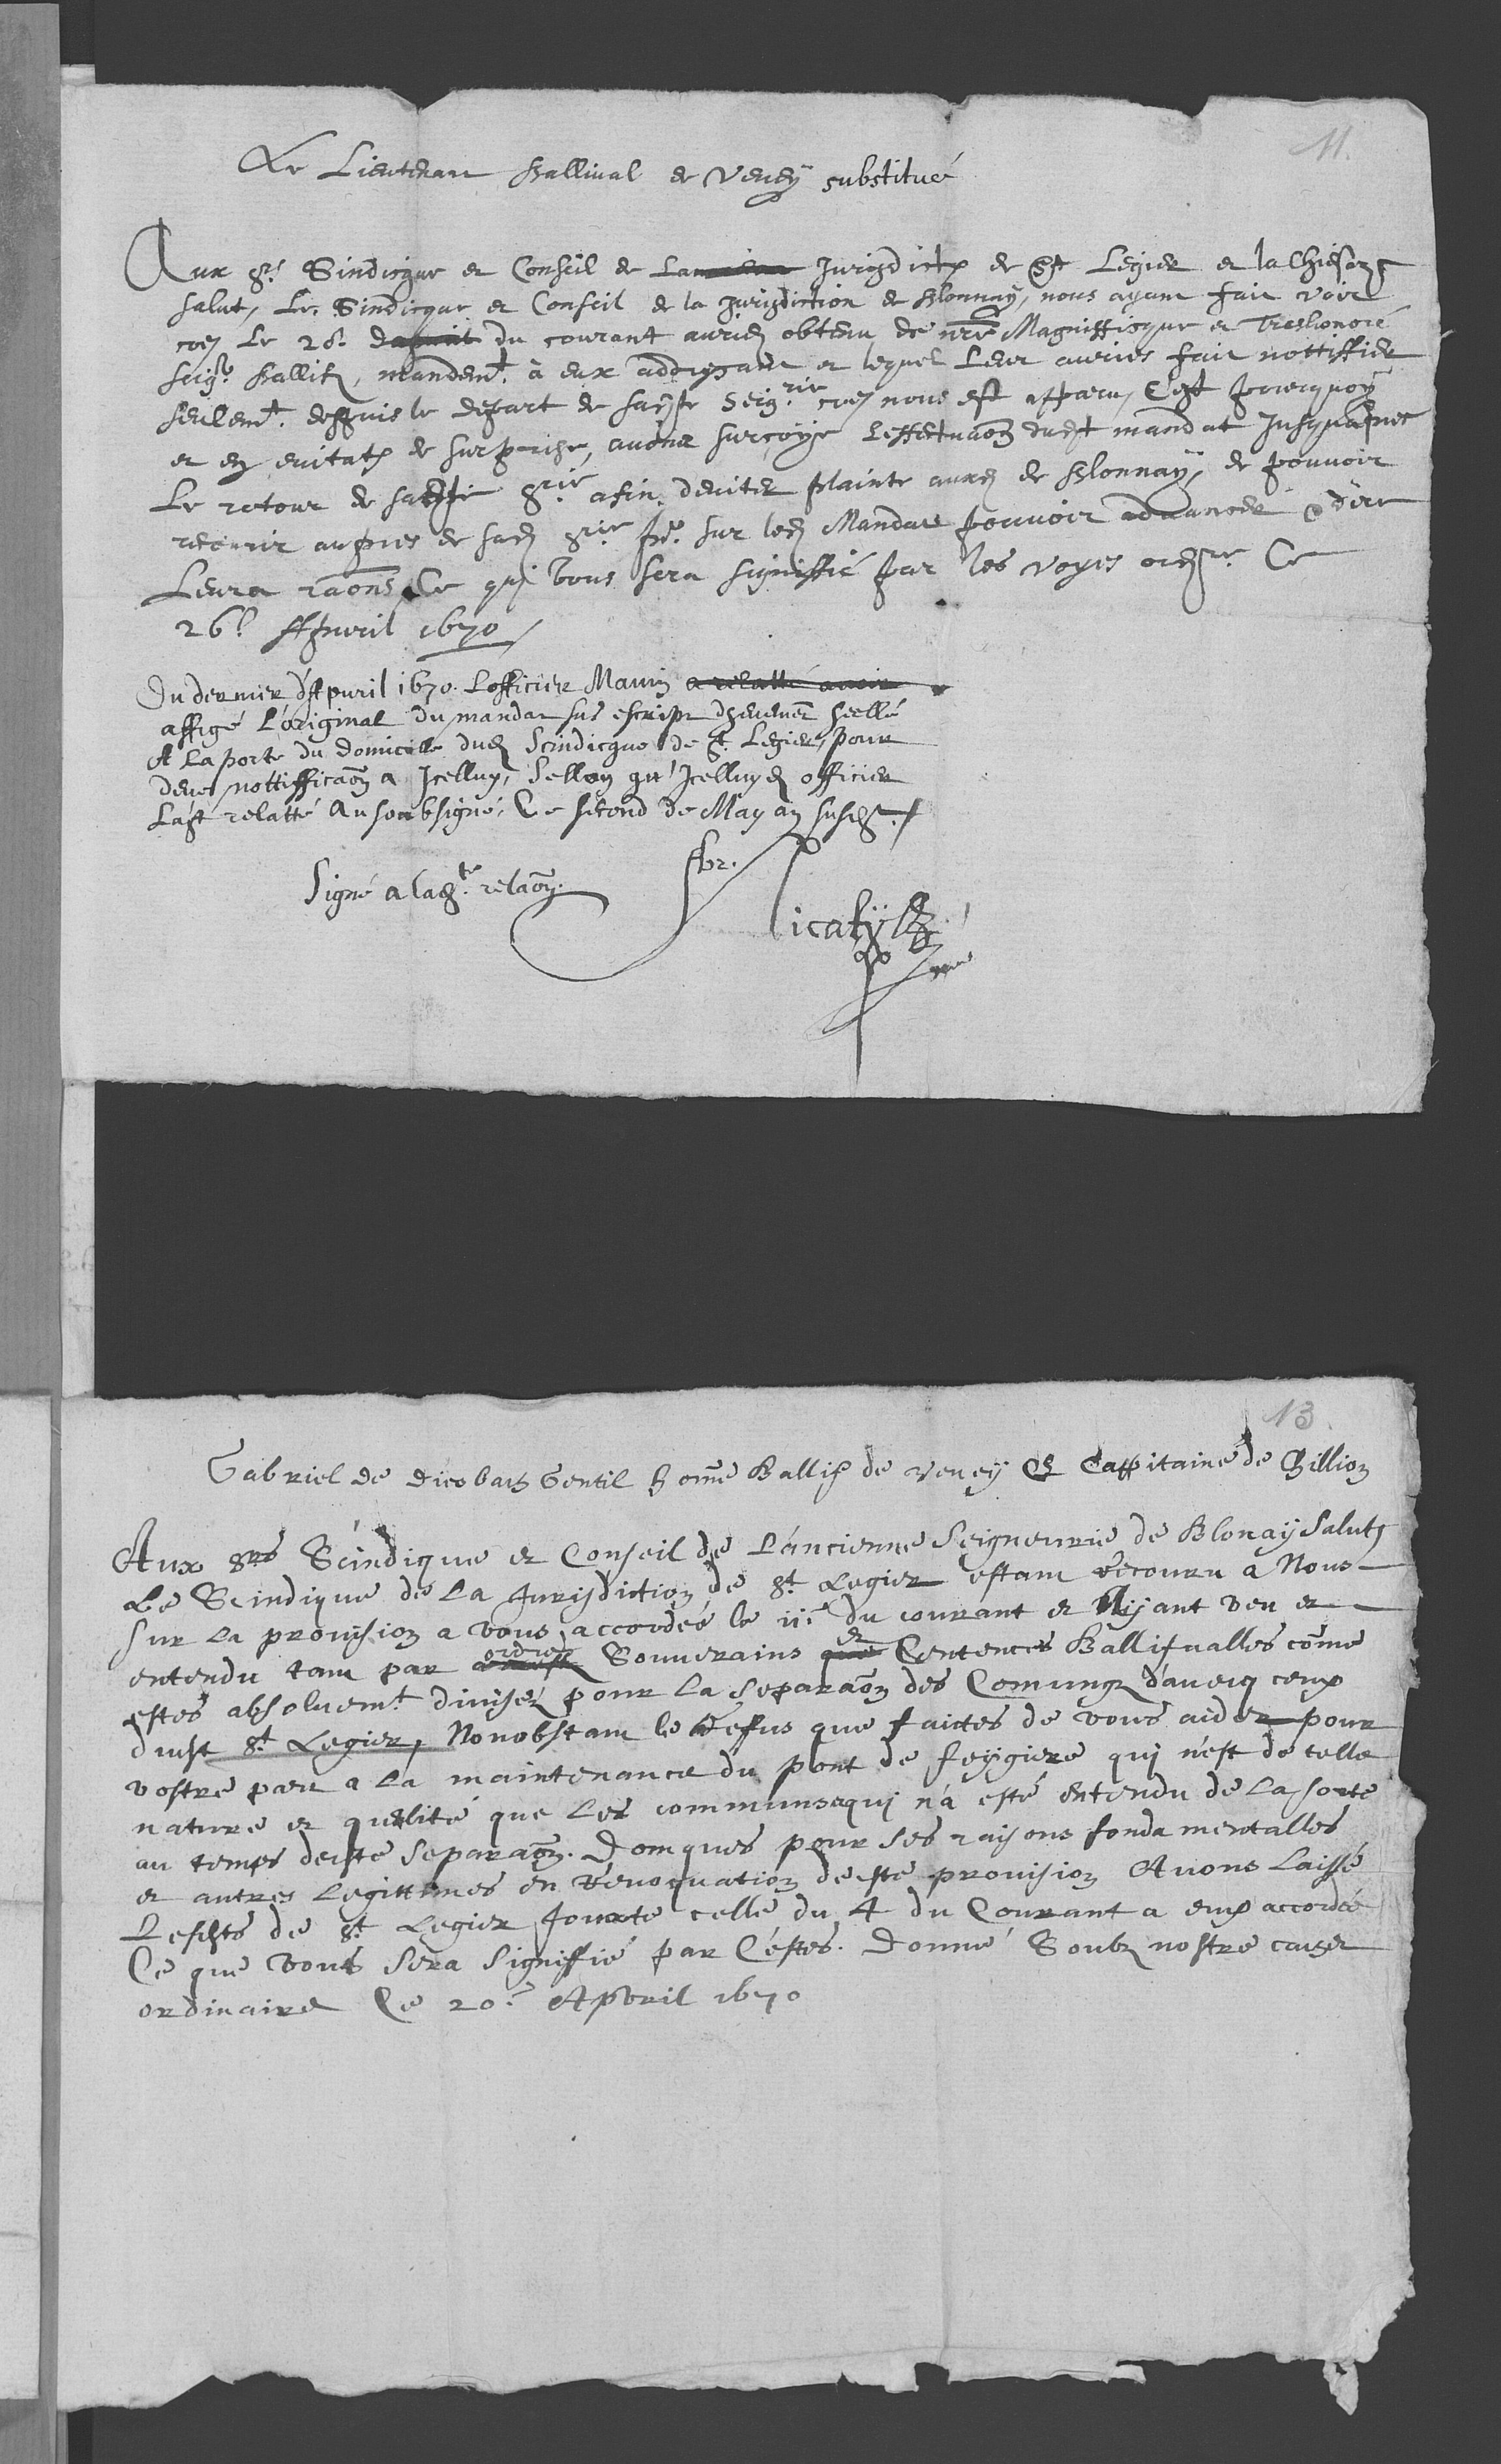 11.
Le Lieutenant Ballival de Vevey substitué
Aux Srs Sindicque et Conseil de La Jurisdiction de St Legier et la Chiesaz
salut, Le Sindicque et Conseil de la Jurisdiction de Blonnay, nous ayant fait voir
Le 20e du courant obtenu de nre Magniffique et Treshonoré
Seigr Ballif, mandemt à eux addressant et lequel Leur auries fait nottiffier
seulemt despuis le depart de Seigrie nous est apparu, C'est pourquoy
et en evitation de surprise, avons surçoyé L'effectuaon dudt mandat Jusques
Le retour de Srie afin d'eviter plainte de Blonnay, de pouvoir
recourir aupres de sad Srie sur led Mandat pouvoir advancer & dire
Leurs raons, Ce qui vous sera signiffié par les voyes ordre Ce
26e Apvril 1670
Du dernier d'Apvril 1670. L'officier Maurin a relatté avoir
affigé L'original du mandat sus escript scellé
A La porte du domicile dud Scindicque de St Legier, pour
deue nottifficaon a Icelluy, Sellon qu'Icelluy d officier
L'a relatté Au soubsigné, Ce second de May an susd.
Signé a lad te relaon.
13.
Gabriel de Diesbach Gentil home Ballif de Vevey & Cappitaine de Chillion
Aux Srs Scindique et Conseil de L'ancienne Seigneurie de Blonay Salut,
Le Scindique de La Jurisdiction de St Legier estant recouru a Nous
sur La provision a vous accordée le 11e du courant et Ayant veu et
entendu tant par ordres Souverains et Centences Ballifvalles come
estes absoluemt divisez pour La Separaon des Comungz d'avecq ceux
dudt St Legier, Nonobstant le Reffus que faictes de vous aider pour
vostre part a La maintenance du pont de feygiere qui n'est de telle
nature et quallité que Les communs qui n'a esté entendu de La sorte
au temps de separaon. Doncques pour ses raisons fondamentalles
et autres Legittimes en Revoquation de provision Avons Laissé
de St Legier Jouxte celle du 4 du Courant a eux accordée
Ce que vous sera signiffié par Cestes. Donné Soubz nostre cachet
ordinaire Ce 20e Apvril 1670